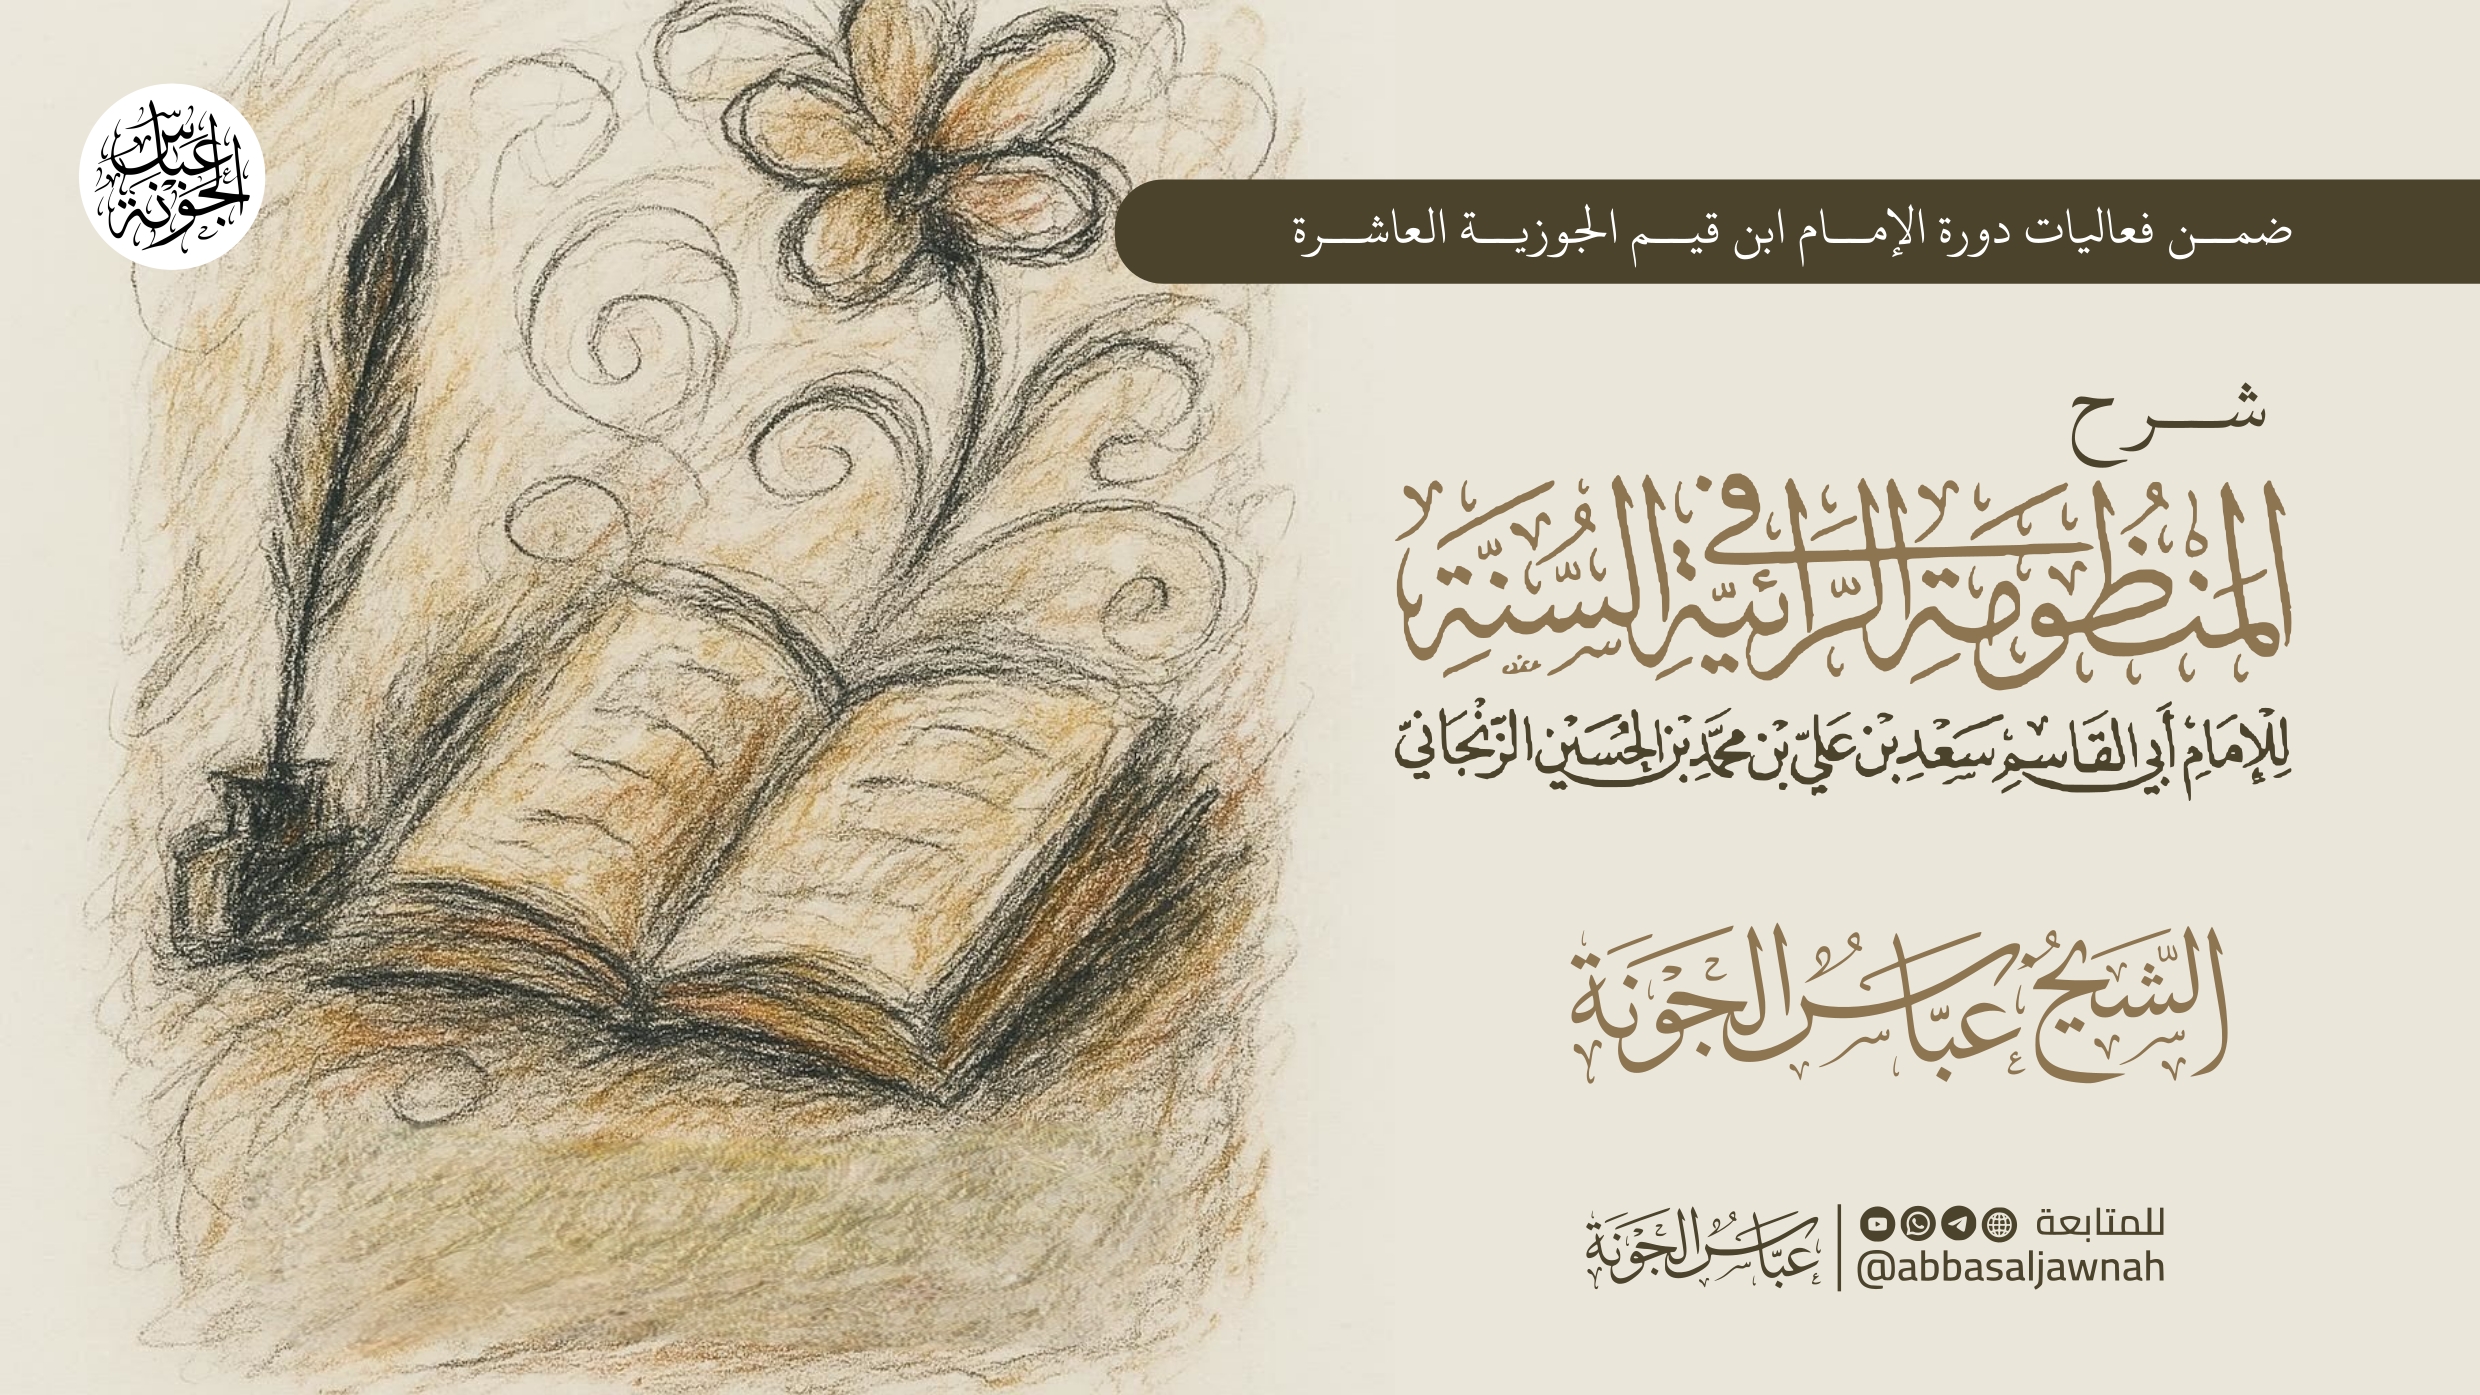 عباس الجونة
ضمن فعاليات دورة الإمام ابن قيم الجوزية العاشرة
شرح
المَنظُومَةِ الرَّائِيَّةِ في السُّنَّةِ
لِلْإِمَامِ أَبِي القَاسِمِ سَعْدِ بْنِ عَلِيِّ بْنِ مُحَمَّدِ بْنِ الحُسَيْنِ الزَّنْجَانِيّ
الشَّيْخُ عَبَّاسُ الجَوْنَة
للمتابعة
@abbasaljawnah
عَبَّاسُ الجَوْنَة